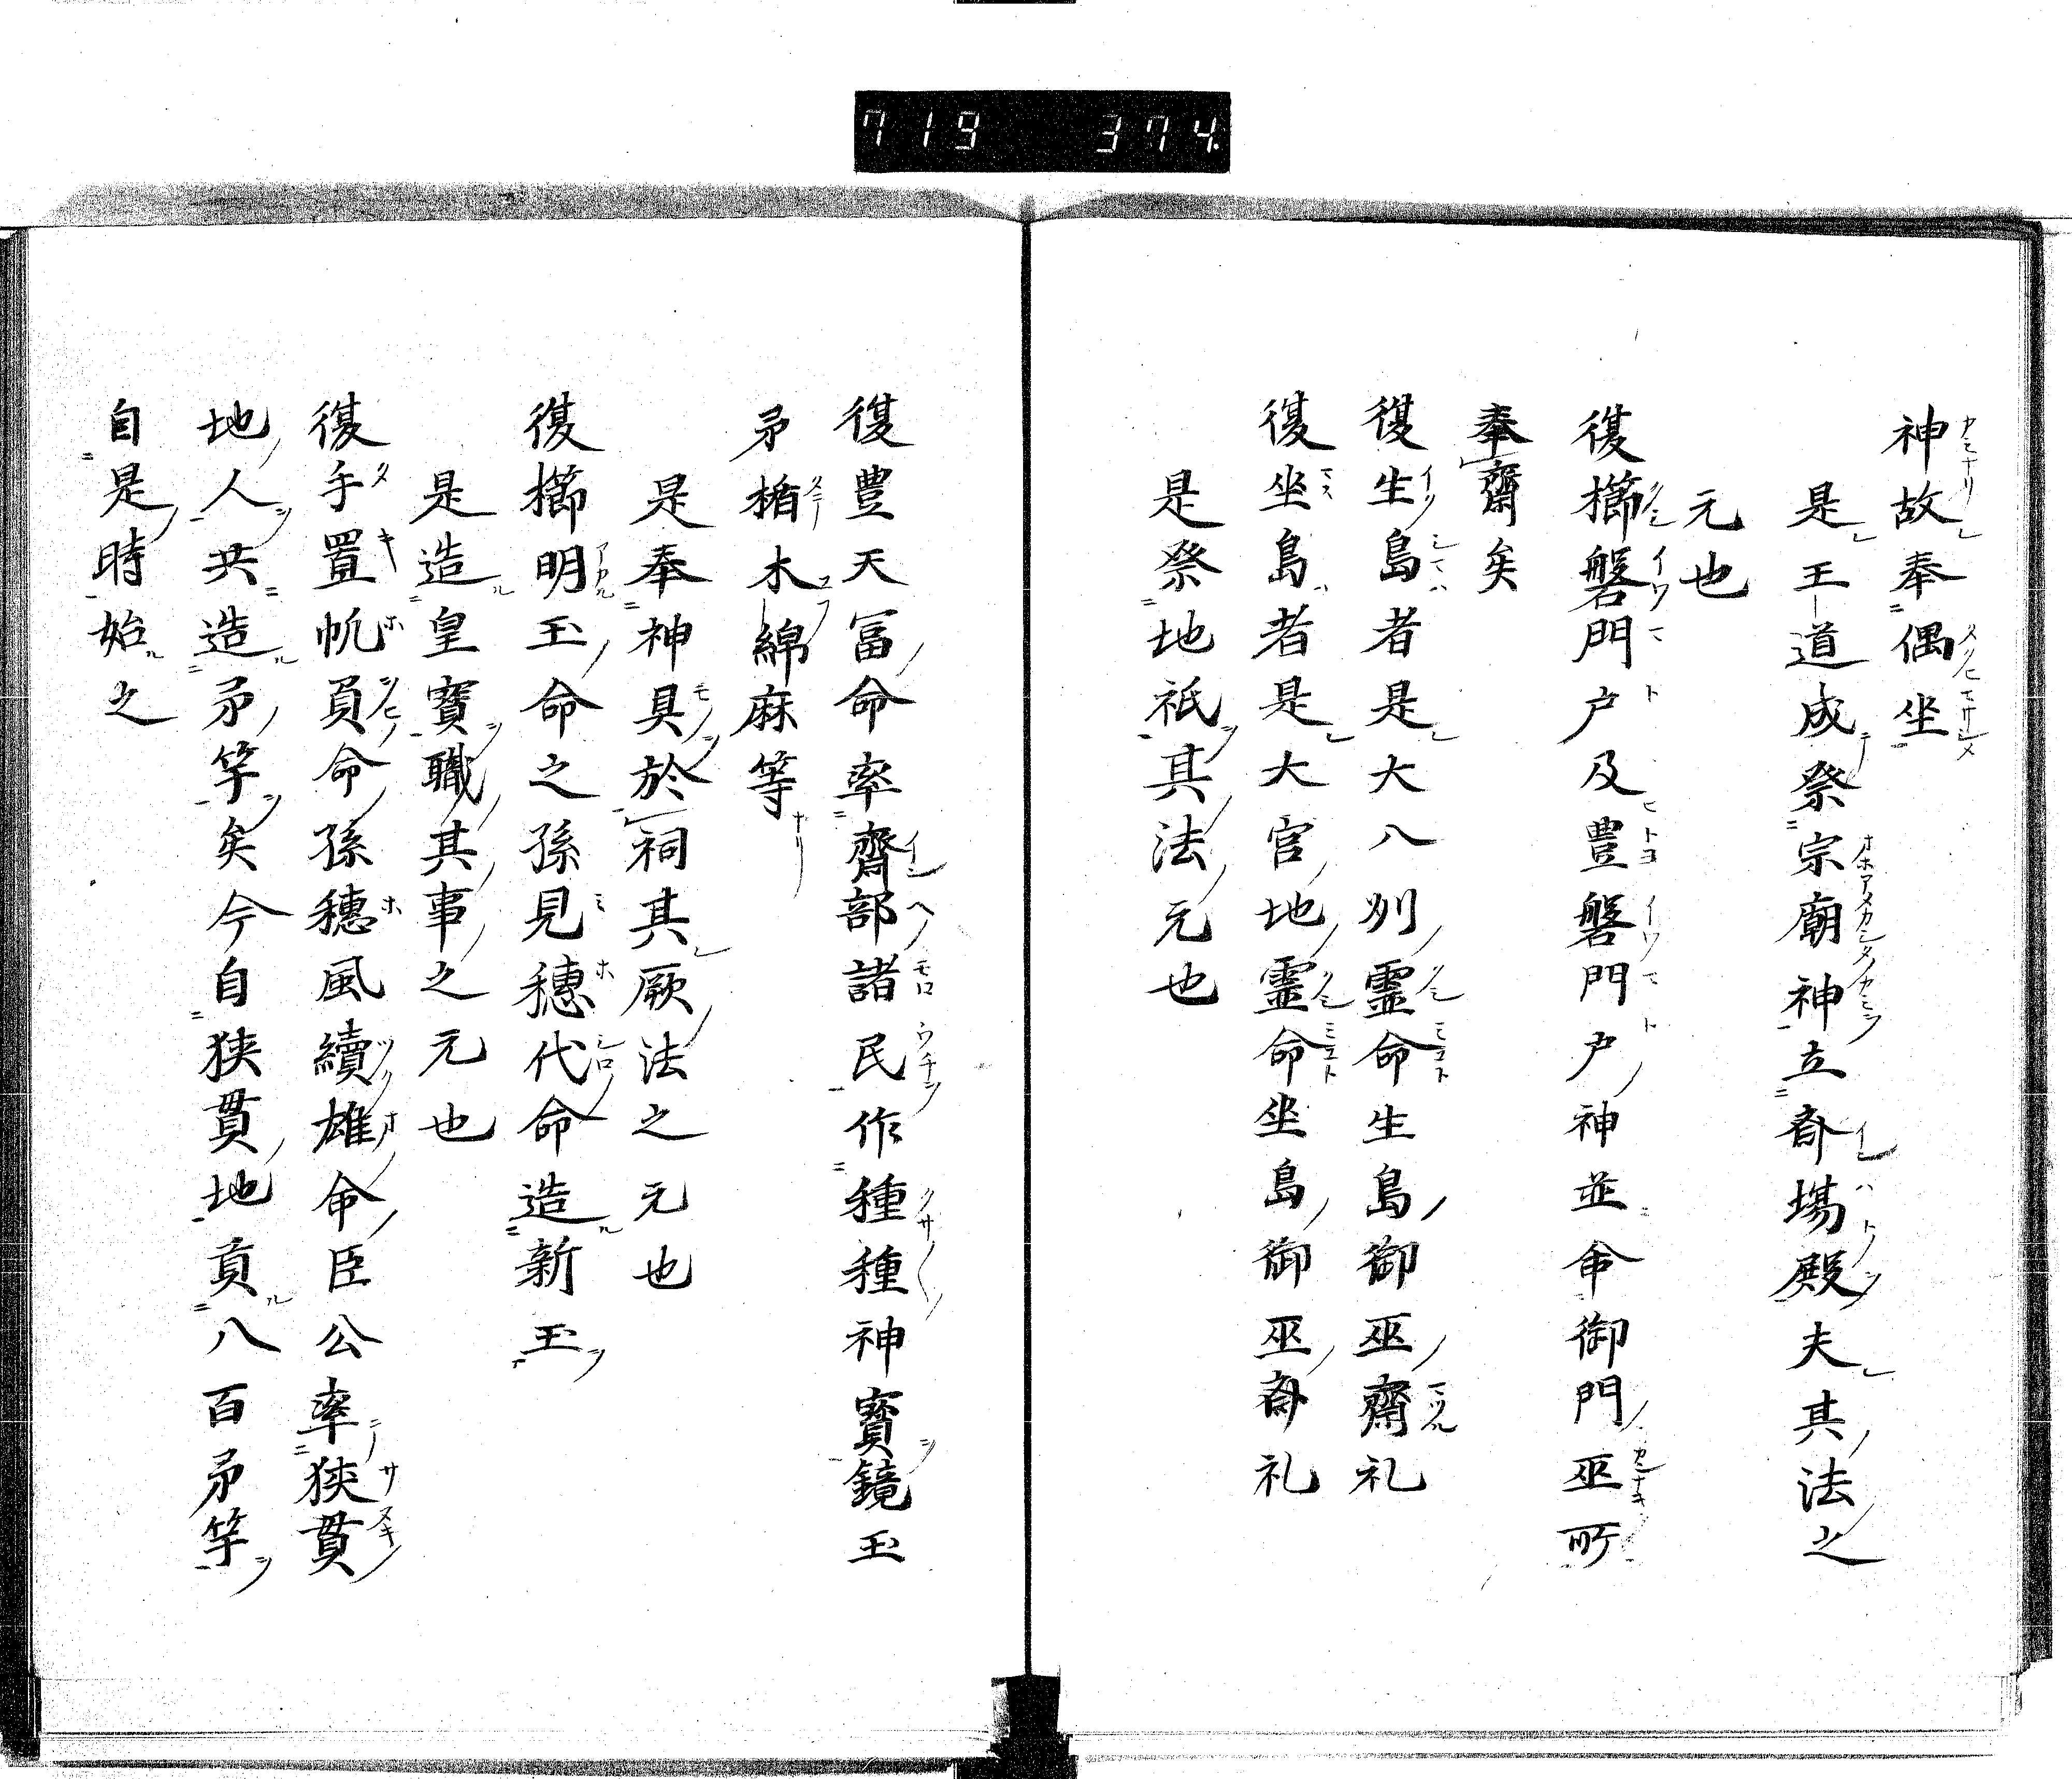 719 374.
神故奉偶坐
是王道成祭宗廟神立斎場殿夫其法之
元也
復櫛磐門戸及豊磐門戸神並命御門巫所
奉齋矣
復生島者是大八州霊命生島御巫齋礼
復坐島者是大宮地霊命坐島御巫斎礼
是祭地祇其法元也
復豊天冨命率齋部諸民作種種神寶鏡玉
矛楯木綿麻等
是奉神具於祠其厥法之元也
復櫛明玉命之孫見穗代命造新玉
是造皇寶職其事之元也
復手置帆負命孫穗風續雄命臣公率狭貫
地人共造矛竿矣今自狭貫地貢八百矛竿
自是時始之